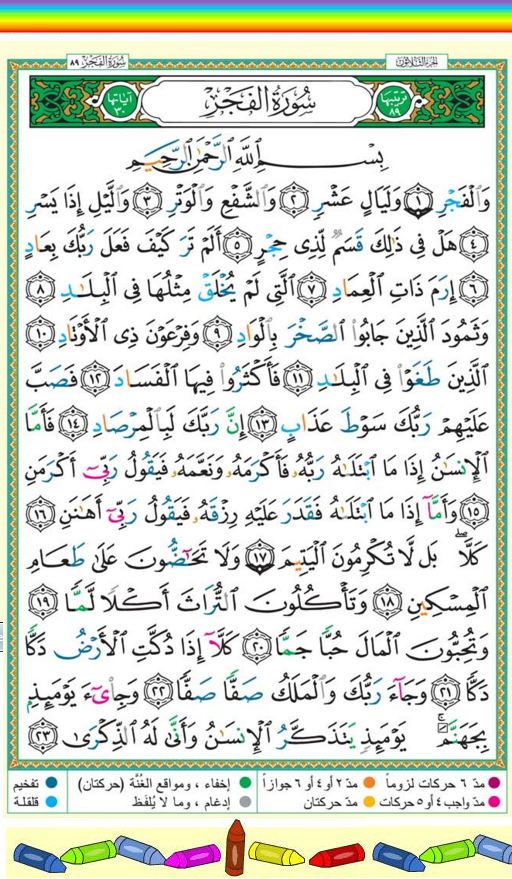 سُورَةُ الفَجْرِ ٨٩
الجزء الثلاثون
ترتيبها ٨٩
سُورَةُ الفَجْرِ
آياتها ٣٠
بِسْمِ ٱللَّهِ ٱلرَّحْمَٰنِ ٱلرَّحِيمِ
وَٱلْفَجْرِ ١ وَلَيَالٍ عَشْرٍ ٢ وَٱلشَّفْعِ وَٱلْوَتْرِ ٣ وَٱلَّيْلِ إِذَا يَسْرِ
٤ هَلْ فِى ذَٰلِكَ قَسَمٌ لِّذِى حِجْرٍ ٥ أَلَمْ تَرَ كَيْفَ فَعَلَ رَبُّكَ بِعَادٍ
٦ إِرَمَ ذَاتِ ٱلْعِمَادِ ٧ ٱلَّتِى لَمْ يُخْلَقْ مِثْلُهَا فِى ٱلْبِلَـٰدِ ٨
وَثَمُودَ ٱلَّذِينَ جَابُوا۟ ٱلصَّخْرَ بِٱلْوَادِ ٩ وَفِرْعَوْنَ ذِى ٱلْأَوْتَادِ ١٠
ٱلَّذِينَ طَغَوْا۟ فِى ٱلْبِلَـٰدِ ١١ فَأَكْثَرُوا۟ فِيهَا ٱلْفَسَادَ ١٢ فَصَبَّ
عَلَيْهِمْ رَبُّكَ سَوْطَ عَذَابٍ ١٣ إِنَّ رَبَّكَ لَبِٱلْمِرْصَادِ ١٤ فَأَمَّا
ٱلْإِنسَـٰنُ إِذَا مَا ٱبْتَلَـٰهُ رَبُّهُۥ فَأَكْرَمَهُۥ وَنَعَّمَهُۥ فَيَقُولُ رَبِّىٓ أَكْرَمَنِ
١٥ وَأَمَّآ إِذَا مَا ٱبْتَلَـٰهُ فَقَدَرَ عَلَيْهِ رِزْقَهُۥ فَيَقُولُ رَبِّىٓ أَهَـٰنَنِ ١٦
كَلَّا ۖ بَل لَّا تُكْرِمُونَ ٱلْيَتِيمَ ١٧ وَلَا تَحَـٰٓضُّونَ عَلَىٰ طَعَامِ
ٱلْمِسْكِينِ ١٨ وَتَأْكُلُونَ ٱلتُّرَاثَ أَكْلًا لَّمًّا ١٩
وَتُحِبُّونَ ٱلْمَالَ حُبًّا جَمًّا ٢٠ كَلَّآ إِذَا دُكَّتِ ٱلْأَرْضُ دَكًّا
دَكًّا ٢١ وَجَآءَ رَبُّكَ وَٱلْمَلَكُ صَفًّا صَفًّا ٢٢ وَجِا۟ىٓءَ يَوْمَئِذٍۭ
بِجَهَنَّمَ ۚ يَوْمَئِذٍ يَتَذَكَّرُ ٱلْإِنسَـٰنُ وَأَنَّىٰ لَهُ ٱلذِّكْرَىٰ ٢٣
مدّ ٦ حركات لزوماً
مدّ ٢ أو ٤ أو ٦ جوازاً
إخفاء ، ومواقع الغُنَّة (حركتان)
تفخيم
مدّ واجب ٤ أو ٥ حركات
مدّ حركتان
إدغام ، وما لا يُلفَظ
قلقلة